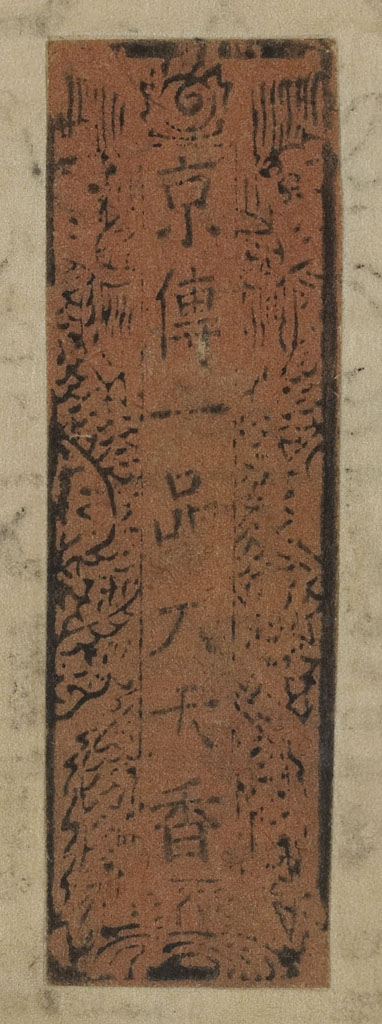 京傳一品人天香